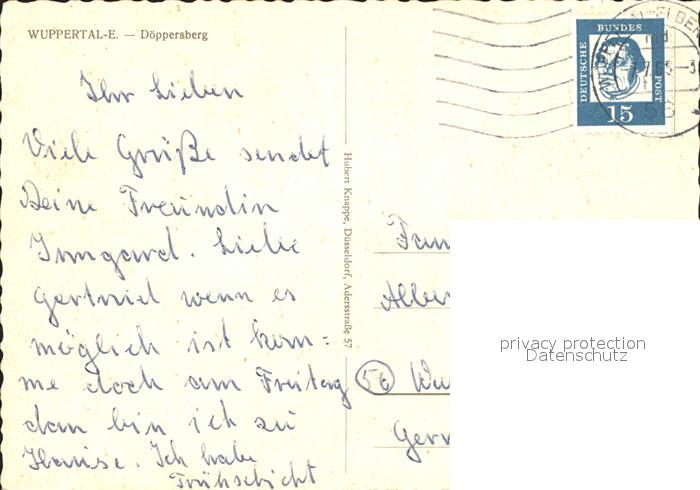 WUPPERTAL-E. — Döppersberg
DEUTSCHE
BUNDES
POST
15
Ihr Lieben
Viele Grüße sendet
Deine Freundin
Irmgard. Liebe
Gertrud wenn es
möglich ist kom=
me doch am Freitag
dan bin ich zu
Hause. Ich habe
Frühschicht
Hubert Knappe, Düsseldorf, Adersstraße 57
Fam
Alber
56 Wu
Germ
privacy protection
Datenschutz